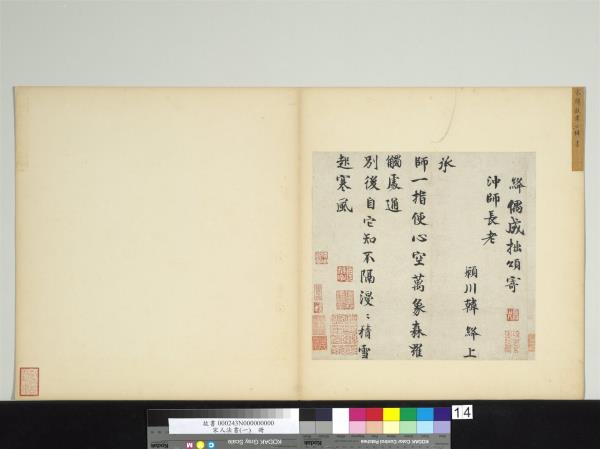 絳偶成拙頌寄
沖師長老
潁川韓絳上
承
師一指便心空萬象森羅
觸處通
別後自它知不隔漫〻積雪
起寒風
14
故書 000243N000000000
宋人法書(一) 冊
KODAK Color Control Patches
KODAK Gray Scale
C
M
Kodak